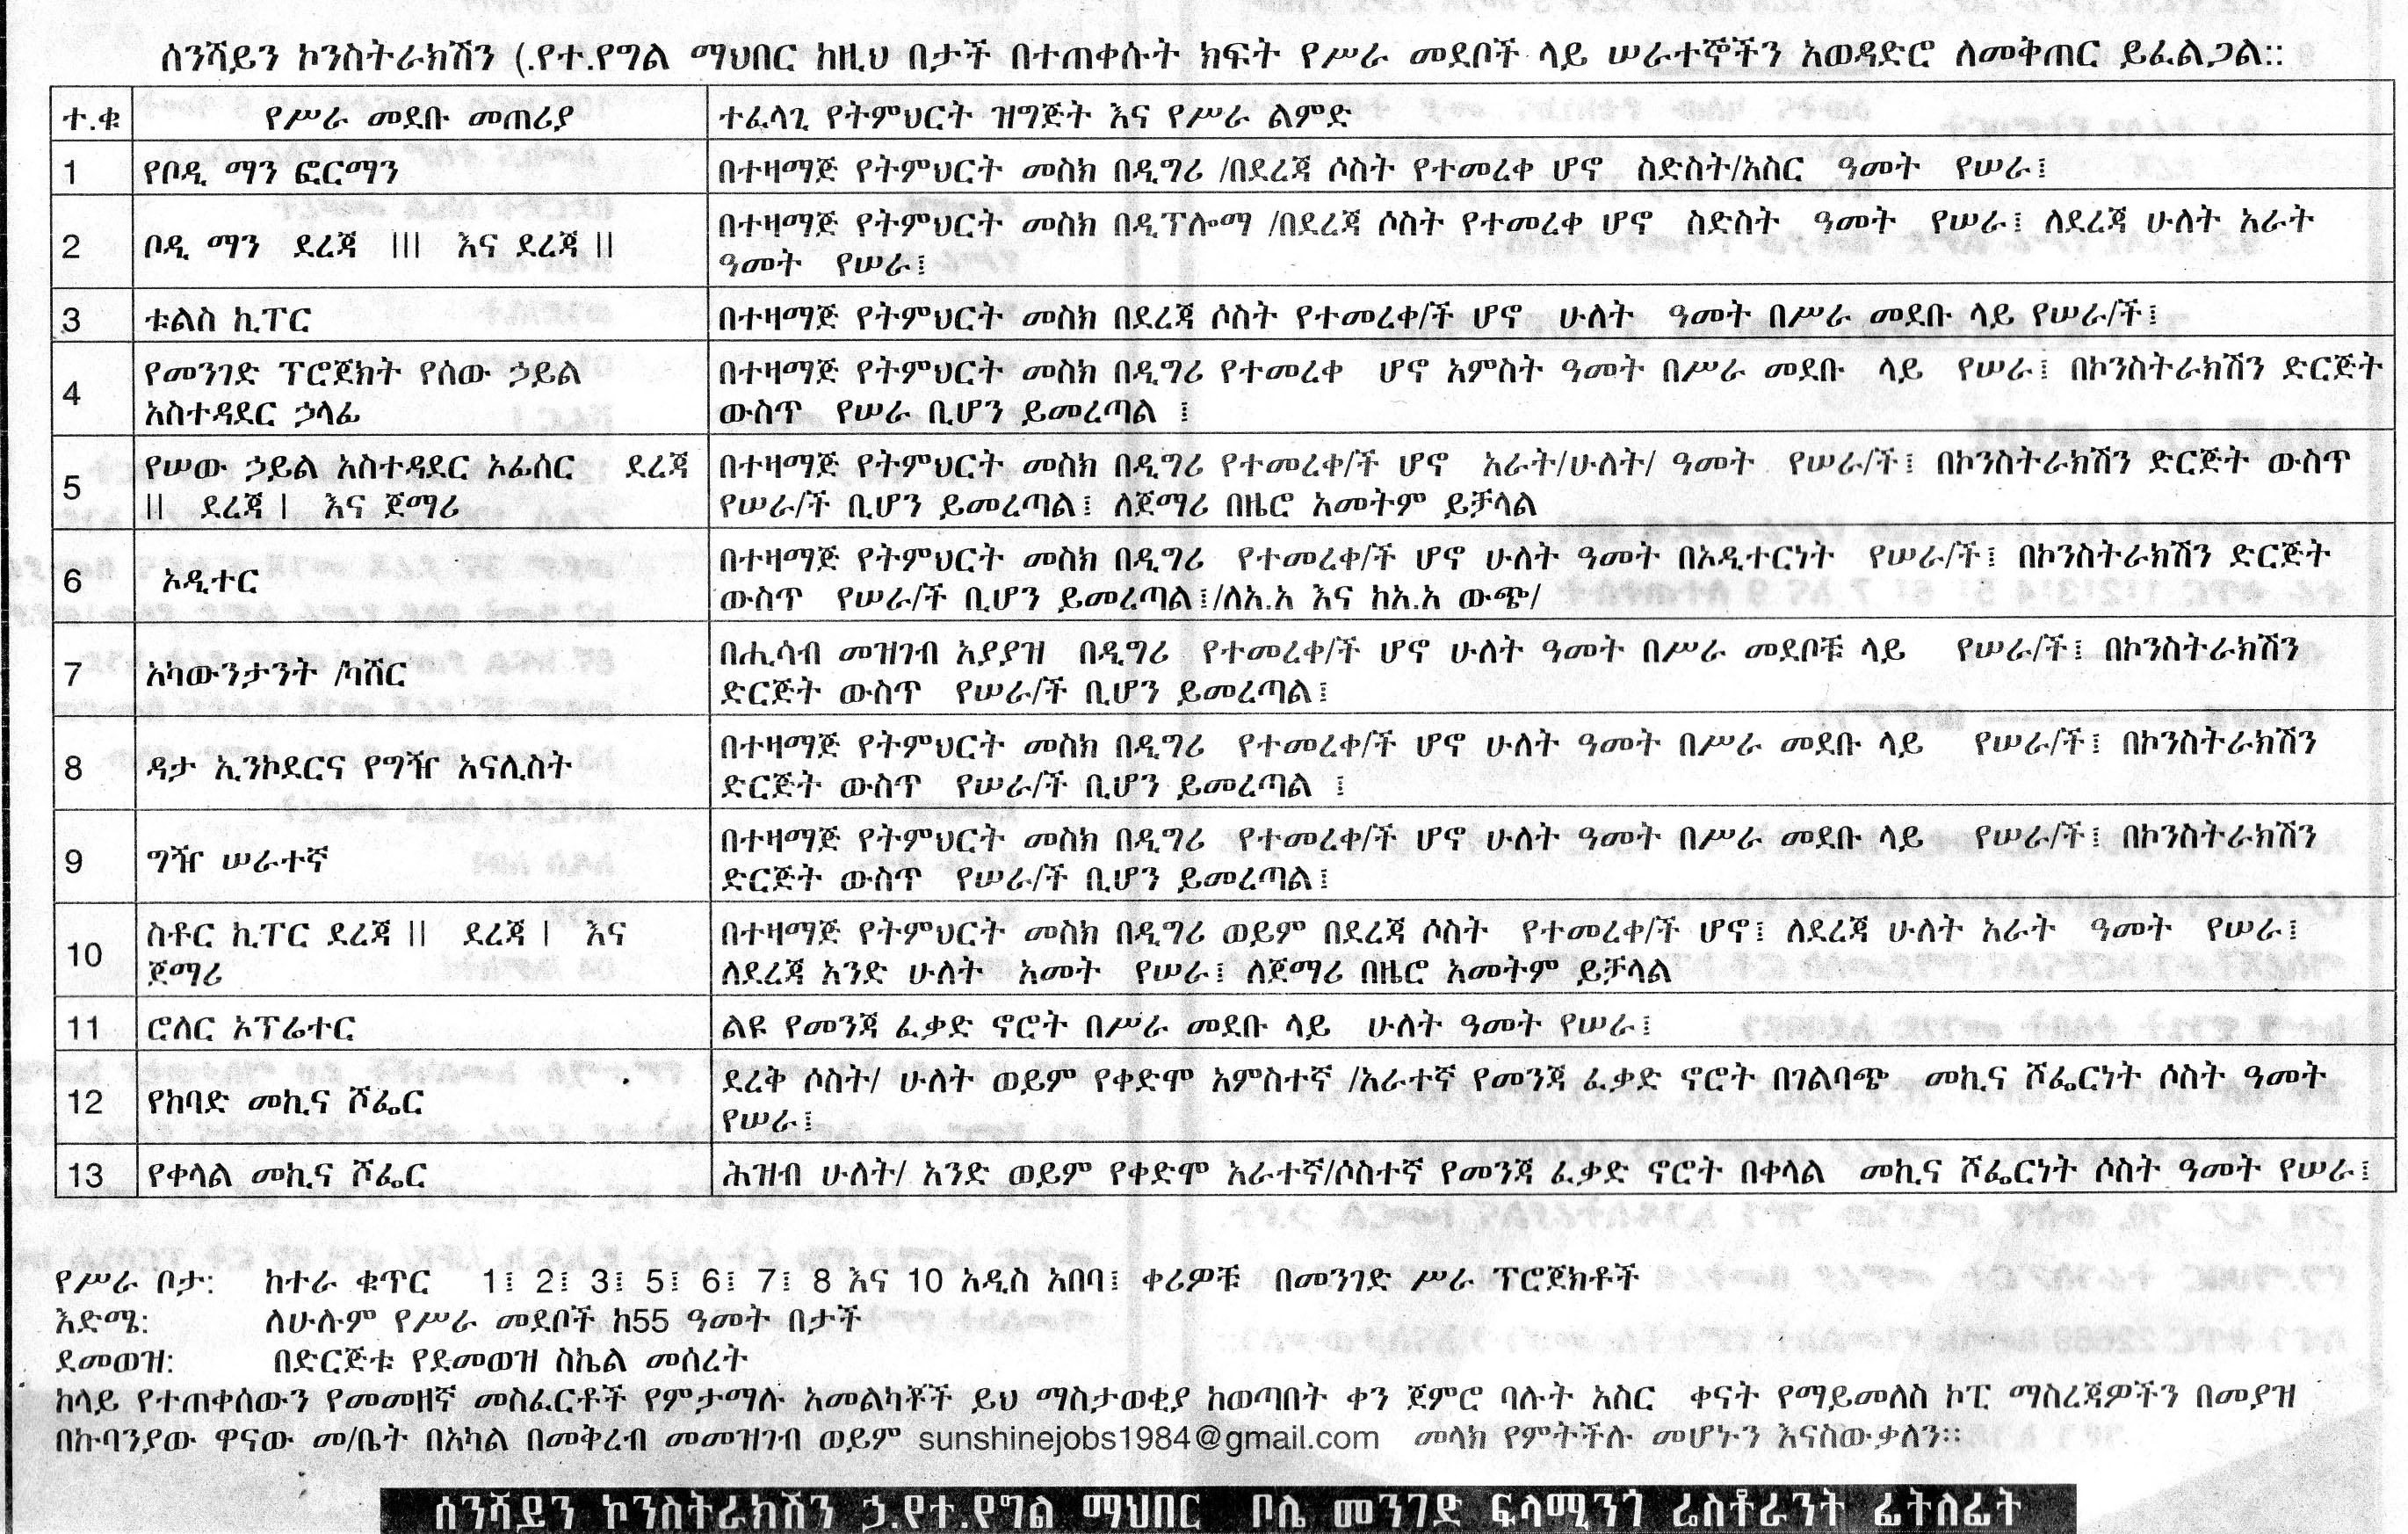 ሰንሻይን ኮንስትራክሽን (.የተ.የግል ማህበር ከዚህ በታች በተጠቀሱት ክፍት የሥራ መደቦች ላይ ሠራተኞችን አወዳድሮ ለመቅጠር ይፈልጋል::
ተ.ቁ የሥራ መደቡ መጠሪያ ተፈላጊ የትምህርት ዝግጅት እና የሥራ ልምድ
1 የቦዲ ማን ፎርማን በተዛማጅ የትምህርት መስክ በዲግሪ /በደረጃ ሶስት የተመረቀ ሆኖ ስድስት/አስር ዓመት የሠራ፤
2 ቦዲ ማን ደረጃ III እና ደረጃ II በተዛማጅ የትምህርት መስክ በዲፕሎማ /በደረጃ ሶስት የተመረቀ ሆኖ ስድስት ዓመት የሠራ፤ ለደረጃ ሁለት አራት
ዓመት የሠራ፤
3 ቱልስ ኪፐር በተዛማጅ የትምህርት መስክ በደረጃ ሶስት የተመረቀ/ች ሆኖ ሁለት ዓመት በሥራ መደቡ ላይ የሠራ/ች፤
4 የመንገድ ፕሮጀክት የሰው ኃይል
አስተዳደር ኃላፊ
በተዛማጅ የትምህርት መስክ በዲግሪ የተመረቀ ሆኖ አምስት ዓመት በሥራ መደቡ ላይ የሠራ፤ በኮንስትራክሽን ድርጅት
ውስጥ የሠራ ቢሆን ይመረጣል ፤
5 የሠው ኃይል አስተዳደር ኦፊሰር ደረጃ
II ደረጃ I እና ጀማሪ
በተዛማጅ የትምህርት መስክ በዲግሪ የተመረቀ/ች ሆኖ አራት/ሁለት/ ዓመት የሠራ/ች፤ በኮንስትራክሽን ድርጅት ውስጥ
የሠራ/ች ቢሆን ይመረጣል፤ ለጀማሪ በዜሮ አመትም ይቻላል
6 ኦዲተር በተዛማጅ የትምህርት መስክ በዲግሪ የተመረቀ/ች ሆኖ ሁለት ዓመት በኦዲተርነት የሠራ/ች፤ በኮንስትራክሽን ድርጅት
ውስጥ የሠራ/ች ቢሆን ይመረጣል፤/ለአ.አ እና ከአ.አ ውጭ/
7 አካውንታንት /ካሸር በሒሳብ መዝገብ አያያዝ በዲግሪ የተመረቀ/ች ሆኖ ሁለት ዓመት በሥራ መደቦቹ ላይ የሠራ/ች፤ በኮንስትራክሽን
ድርጅት ውስጥ የሠራ/ች ቢሆን ይመረጣል፤
8 ዳታ ኢንኮደርና የግዥ አናሊስት በተዛማጅ የትምህርት መስክ በዲግሪ የተመረቀ/ች ሆኖ ሁለት ዓመት በሥራ መደቡ ላይ የሠራ/ች፤ በኮንስትራክሽን
ድርጅት ውስጥ የሠራ/ች ቢሆን ይመረጣል ፤
9 ግዥ ሠራተኛ በተዛማጅ የትምህርት መስክ በዲግሪ የተመረቀ/ች ሆኖ ሁለት ዓመት በሥራ መደቡ ላይ የሠራ/ች፤ በኮንስትራክሽን
ድርጅት ውስጥ የሠራ/ች ቢሆን ይመረጣል፤
10 ስቶር ኪፐር ደረጃ II ደረጃ I እና
ጀማሪ
በተዛማጅ የትምህርት መስክ በዲግሪ ወይም በደረጃ ሶስት የተመረቀ/ች ሆኖ፤ ለደረጃ ሁለት አራት ዓመት የሠራ፤
ለደረጃ አንድ ሁለት አመት የሠራ፤ ለጀማሪ በዜሮ አመትም ይቻላል
11 ሮለር ኦፕሬተር ልዩ የመንጃ ፈቃድ ኖሮት በሥራ መደቡ ላይ ሁለት ዓመት የሠራ፤
12 የከባድ መኪና ሾፌር ደረቅ ሶስት/ ሁለት ወይም የቀድሞ አምስተኛ /አራተኛ የመንጃ ፈቃድ ኖሮት በገልባጭ መኪና ሾፌርነት ሶስት ዓመት
የሠራ፤
13 የቀላል መኪና ሾፌር ሕዝብ ሁለት/ አንድ ወይም የቀድሞ አራተኛ/ሶስተኛ የመንጃ ፈቃድ ኖሮት በቀላል መኪና ሾፌርነት ሶስት ዓመት የሠራ፤
የሥራ ቦታ: ከተራ ቁጥር 1፤ 2፤ 3፤ 5፤ 6፤ 7፤ 8 እና 10 አዲስ አበባ፤ ቀሪዎቹ በመንገድ ሥራ ፕሮጀክቶች
እድሜ: ለሁሉም የሥራ መደቦች ከ55 ዓመት በታች
ደመወዝ: በድርጅቱ የደመወዝ ስኬል መሰረት
ከላይ የተጠቀሰውን የመመዘኛ መስፈርቶች የምታማሉ አመልካቾች ይህ ማስታወቂያ ከወጣበት ቀን ጀምሮ ባሉት አስር ቀናት የማይመለስ ኮፒ ማስረጃዎችን በመያዝ
በኩባንያው ዋናው መ/ቤት በአካል በመቅረብ መመዝገብ ወይም sunshinejobs1984@gmail.com መላክ የምትችሉ መሆኑን እናስውቃለን::
ሰንሻይን ኮንስትራክሽን ኃ.የተ.የግል ማህበር ቦሌ መንገድ ፍላሚንጎ ሬስቶራንት ፊትለፊት